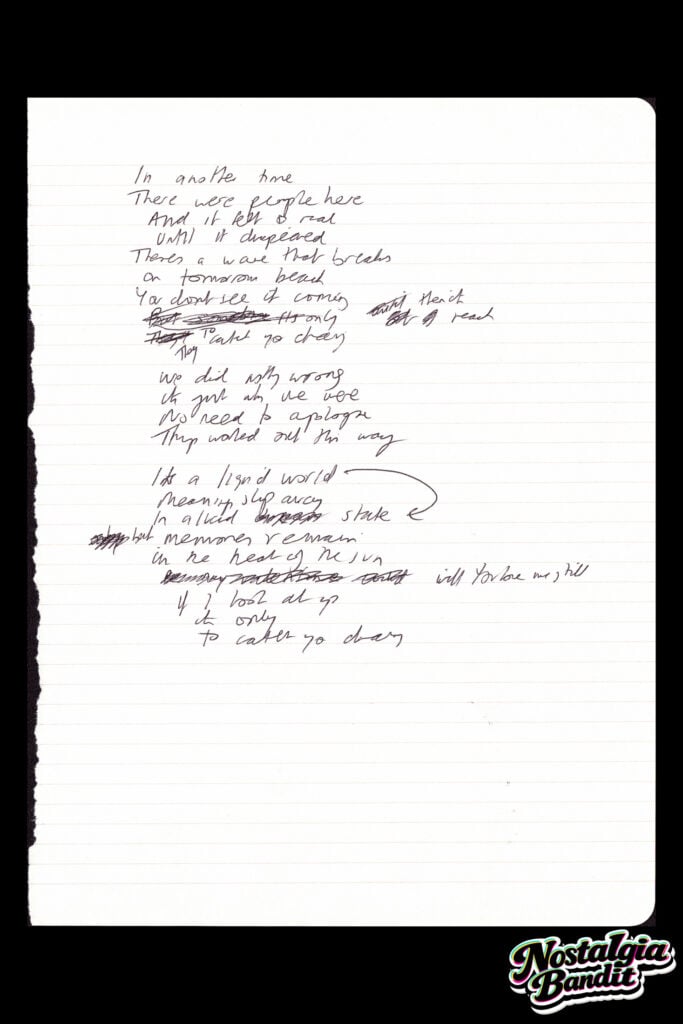 In another time
There were people here
And it felt so real
Until it disapeared
Theres a wave that breaks
on tomorrow beach
You dont see it coming
its only until then it
To catch yo
They reach
We did noth wrong
its just who we were
No need to apologise
Things worked out this way
Its a liquid world
meaning slip away
In a liquid state
but memories remain
in the heat of the sun
will You love me still
If I look at yo
its only
to catch yo
Nostalgia
Bandit